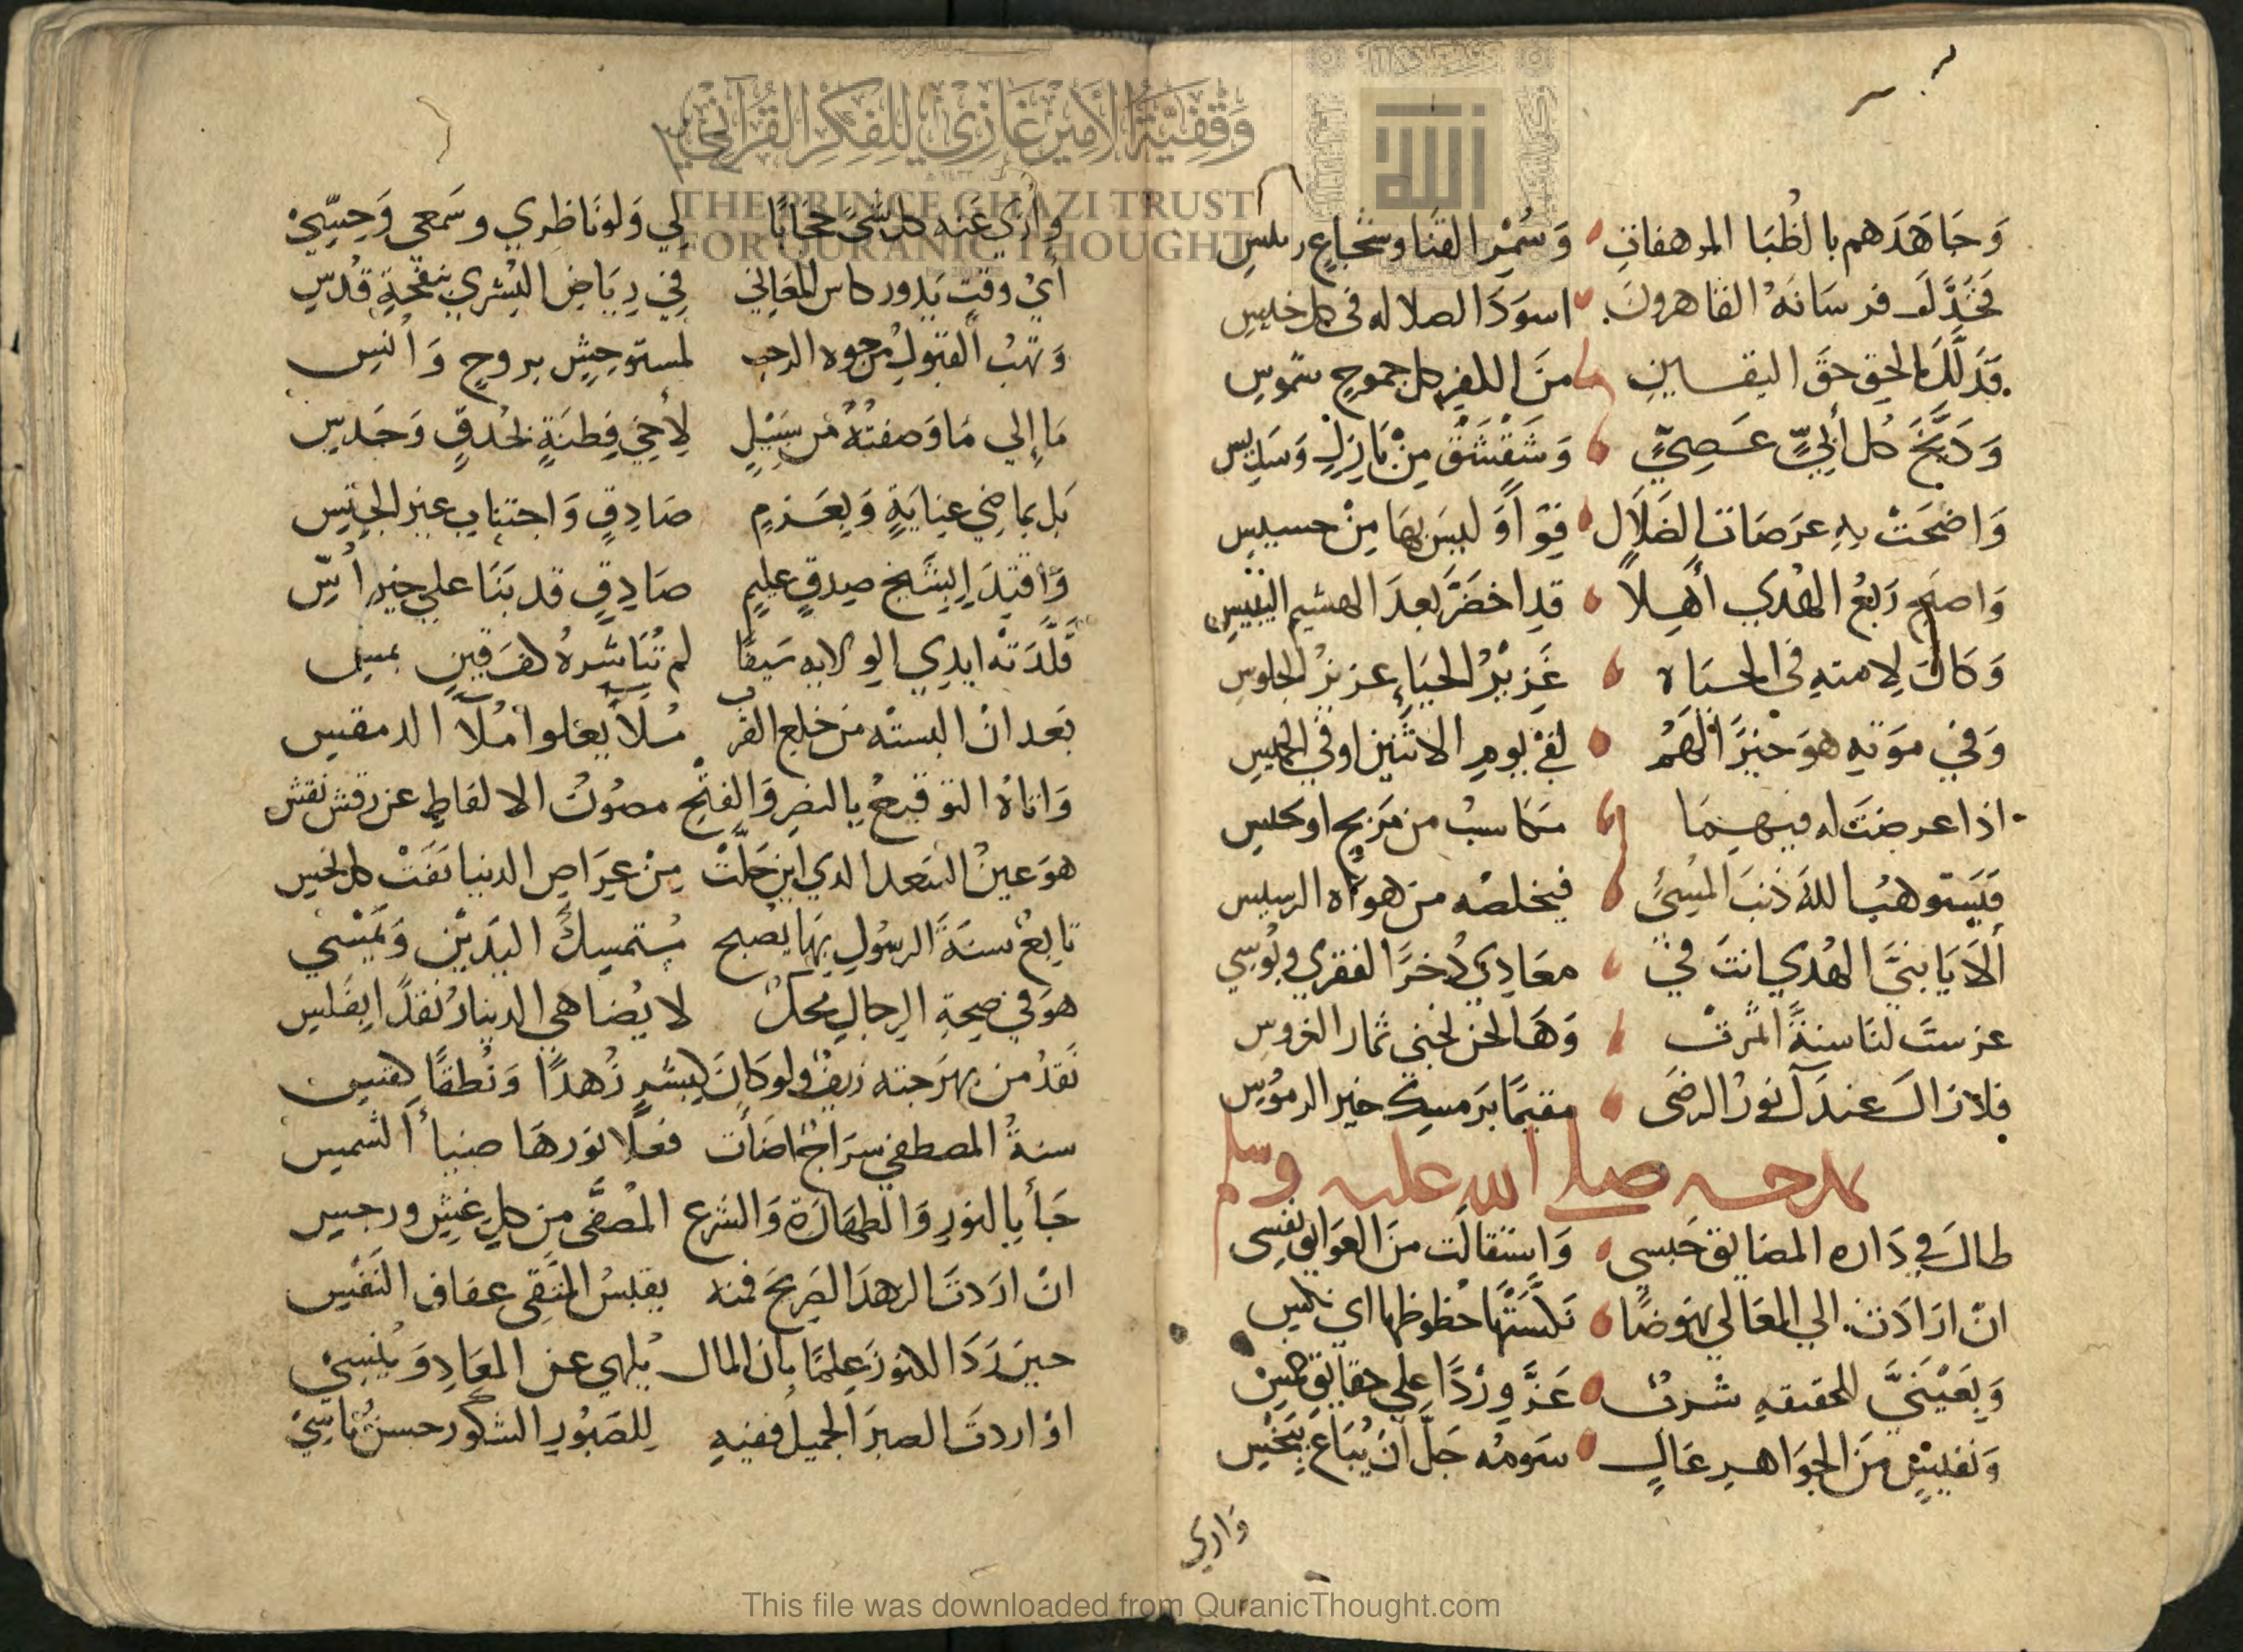 وَجَاهَدَهم بالظُبَا المرهفاتِ وَسُمْرِ القنَا وشجاعٍ
فجَدَّلَ فرسَانَهُ القاهرونَ اسوَدَ الضلاله في كل خيسِ
فذَلَّلَ بالحقِ حقَ اليقينِ منَ الكفرِ كل جموحٍ شموسِ
وَدَيَّخَ كل أبيٍّ عَصِيٍّ وَشَقْشَقَ مِنْ بَازلٍ وَسَدِيسِ
وَاضحَتْ بهِ عَرَصَات الضَلَالِ قِوَآءً وَليسَ بهَا مِنْ حسيسِ
وَاصبح رَبْعُ الهُدَى أهِلاً قدِ اخضَرَّ بعدَ الهشيم اليَبيسِ
وَكانَ لِامتهِ في الحيَاه غَزِيرُ الحَيَاءِ عزيزُ الجلوسِ
وَفي مَوَتهِ هوَ خيْرٌ لَهمُ لفي يومِ الاثنين اوفي الخميسِ
اذا عرضَت له فيهِمَا مكاسبُ من مَزبحٍ اوكيسِ
فَيَستوهبُ اللهَ ذنبَ المُسِئِ فيخلصُه من هواه الرسيس
ألاَ يَا نبيَّ الهُدي انتَ في معَادِي ذُخرًا لفقري وبُوسِي
غرستَ لنَا سنةً اثمرَتْ وَهَا نحن نجني ثمار الغروسِ
فلازالَ عندَكَ نورُ الرضَى مقيمًا برَمسِكَ خير الرموُسِ
يمدحه صلى الله عليه وسلم
طالَ في دَاره المضايق حَبسي وَاستقالت منَ العَوَايق نفسِي
انْ ارَادَت الي المعَالي نهوضًا نكَّسَتْهَا حظوظها اي نكسِ
وَبعَيْنَيَّ للحقيقهِ سَرْتٌ عَزَّ وِرْدًا علي حقايق خمسِ
وَنفيسٌ منَ الجوَاهرِ عَالٍ سَومُه جَلَّ أنْ يُبَاعَ ببَخسِ
وَاري
وأري عَنه كل شئٍ حجَابًا لي وَلو ناظِري وسَمعي وَحِسِّيْ
أيْ وقتٍ يَدور كاس المَعَاني في رِيَاضِ البُشري بنفحَةِ قدُسِ
وَتهبُ القَبُول من جوه الرحب لمستوحِشٍ بروحٍ وَأنسِ
مَا إلي مَا وَصفتُهُ من سَبيْلٍ لِأخِي فِطنَةٍ بحُدقٍ وَحَدسِ
بَل بماضِي عِنايَةٍ وَبِعَزمٍ صَادقٍ وَاجتنابٍ عن الجِبسِ
وَاقتِدَاءٍ بشَيخ صِدقٍ عليمٍ صَادِقٍ قد بَنَا علي خيرِ أُسِّ
قَلَّدَتْه ايدِي الولايه سَيفًا لم تُبَاشرهُ كف قينٍ بمسِ
بَعد انْ البستْه من خلع القرب مُلآً يعلوا مُلآ الدمقسِ
وَاتاهُ التوقيعُ بالنصرِ وَالفتحِ مصُونُ الالفاظِ عن رقشِ نقشِ
هوَ عينُ السَعد الذي اين حَلَّتْ مِنْ عِرَاصِ الدنيا نَفَتْ كل نحسِ
تابعٌ سنةَ الرسُولِ بهَا يُصبح مُستمسِكُ اليَدَيْنِ وَيُمْسي
هوَ في صِحةِ الرجالِ مِحكٌّ لا يُضاهي الدينارُ نقدًا بفَلسِ
نَقدُ من بهرَجته زيفٌ ولو كانَ كبِشرٍ زُهدًا وَنُطقًا كقسِ
سنةُ المصطفي سرَاجٌ اضَأت فعلا نورهَا ضياءَ الشمسِ
جَأ بالنورِ وَالطهَارَة وَالشرع المُصَفَّى من كل غشٍ ورجسِ
انْ ارَدتَ الزهدَ الصَريحَ فمنه يقبسُ المتقِي عفاف النَفسِ
حينَ رَدَا الكنوزَ عِلمًا بأن المال يُلهي عن المعَادِ وَيُنسِيْ
اوْ اردتَ الصبرَ الجميل ففيهِ للصَبُورِ الشكورِ حسنُ تأسِّيْ
وَقْفِيَّةُ الأَمِيرِ غَازِي لِلْفِكْرِ القُرْآنِيِّ
THE PRINCE GHAZI TRUST
FOR QURANIC THOUGHT
الله
This file was downloaded from QuranicThought.com